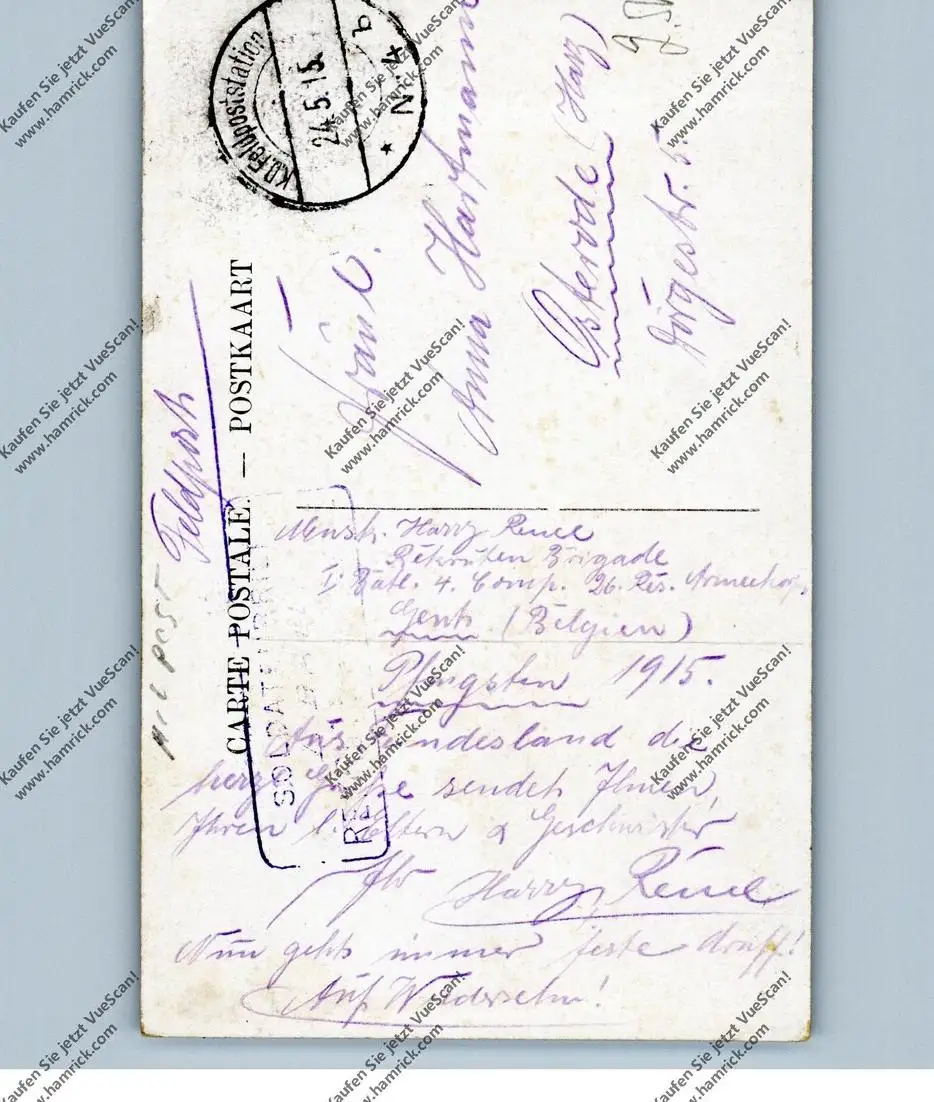 K.D. Feldpoststation
24.5.15.
* Nr. 4 b
Feldpost
MIL POST
CARTE POSTALE — POSTKAART
Fräul.
Anna Hartmann
Osterode (Harz)
5.
SOLDATENBRIEF
Harry
Rekruten Brigade
I. Batl. 4. Comp. 26. Res. Armeekorps
Gent (Belgien)
Pfingsten 1915.
Aus die
herzl. Grüße sendet Ihnen,
Ihren l. Eltern & Geschwister
Ihr Harry
Nun gehts immer feste druff!
Auf Wiedersehn!
Kaufen Sie jetzt VueScan!
www.hamrick.com